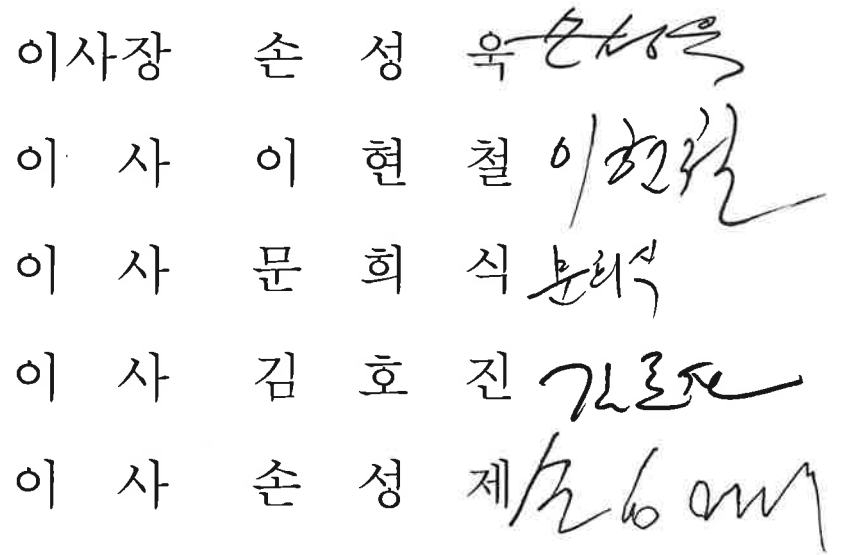 이사장 손 성 욱 손성욱
이 사 이 현 철 이현철
이 사 문 희 식 문희식
이 사 김 호 진
이 사 손 성 제